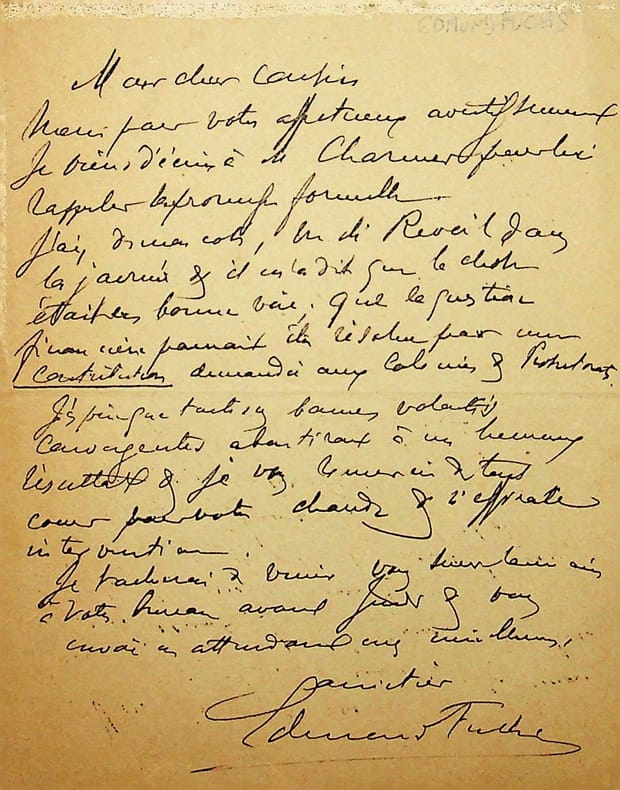 EDMOND FUCHS
Mon cher Cousin
Merci pour votre affectueux avertissement
Je viens d'écrire à M Charmes pour lui
rappeler la promesse formelle.
J'ai, de mon coté, vu di Reveil dans
la journée & il m'a dit que la chose
était en bonne voie; que la question
financière pourrait être résolue par une
contribution demandée aux Colonies & Protectorats.
J'espère que toutes ces bonnes volontés
convergentes aboutiront à un heureux
résultat & je vous remercie de tout
coeur pour votre chaude & si efficace
intervention.
Je tacherai de venir vous
à votre bureau avant jeudi & vous
envoie en attendant mes meilleures
amitiés
Edmond Fuchs